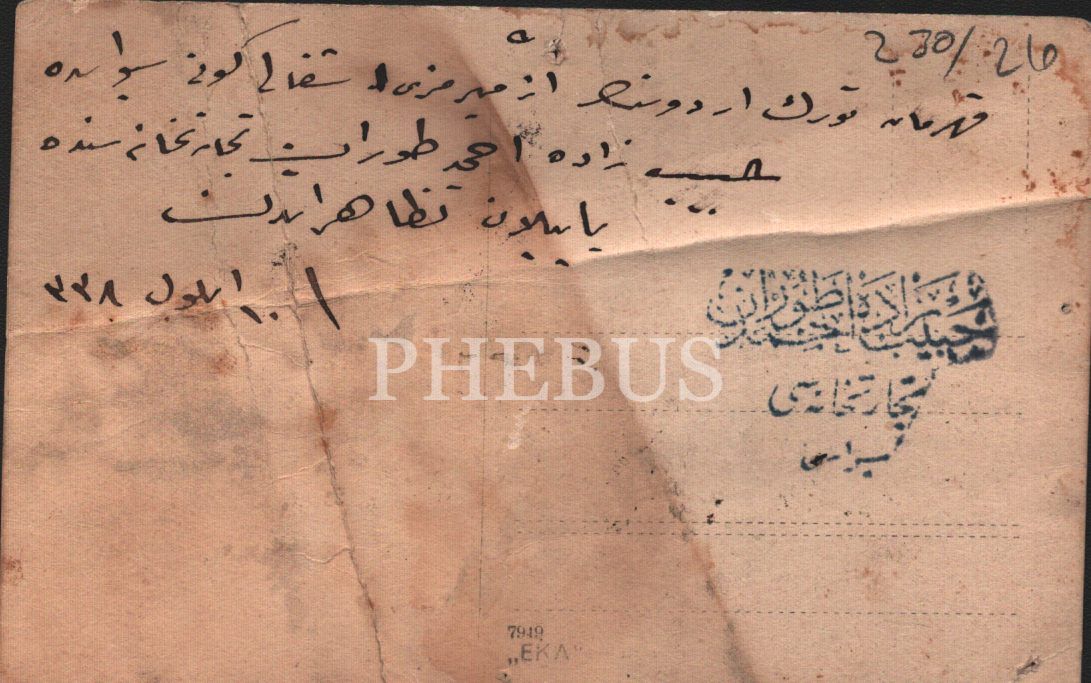 230/26
قهرمان تورك اردوسنك ازميرمزى استقبالى كونى سيواسده
حبيب زاده احمد طوران تجارتخانه سنده
ياپيلان تظاهراتدن
١٠ ايلول ٣٣٨
حبيب زاده احمد طوران
تجارتخانه سى
سيواس
PHEBUS
7949
„EKA"